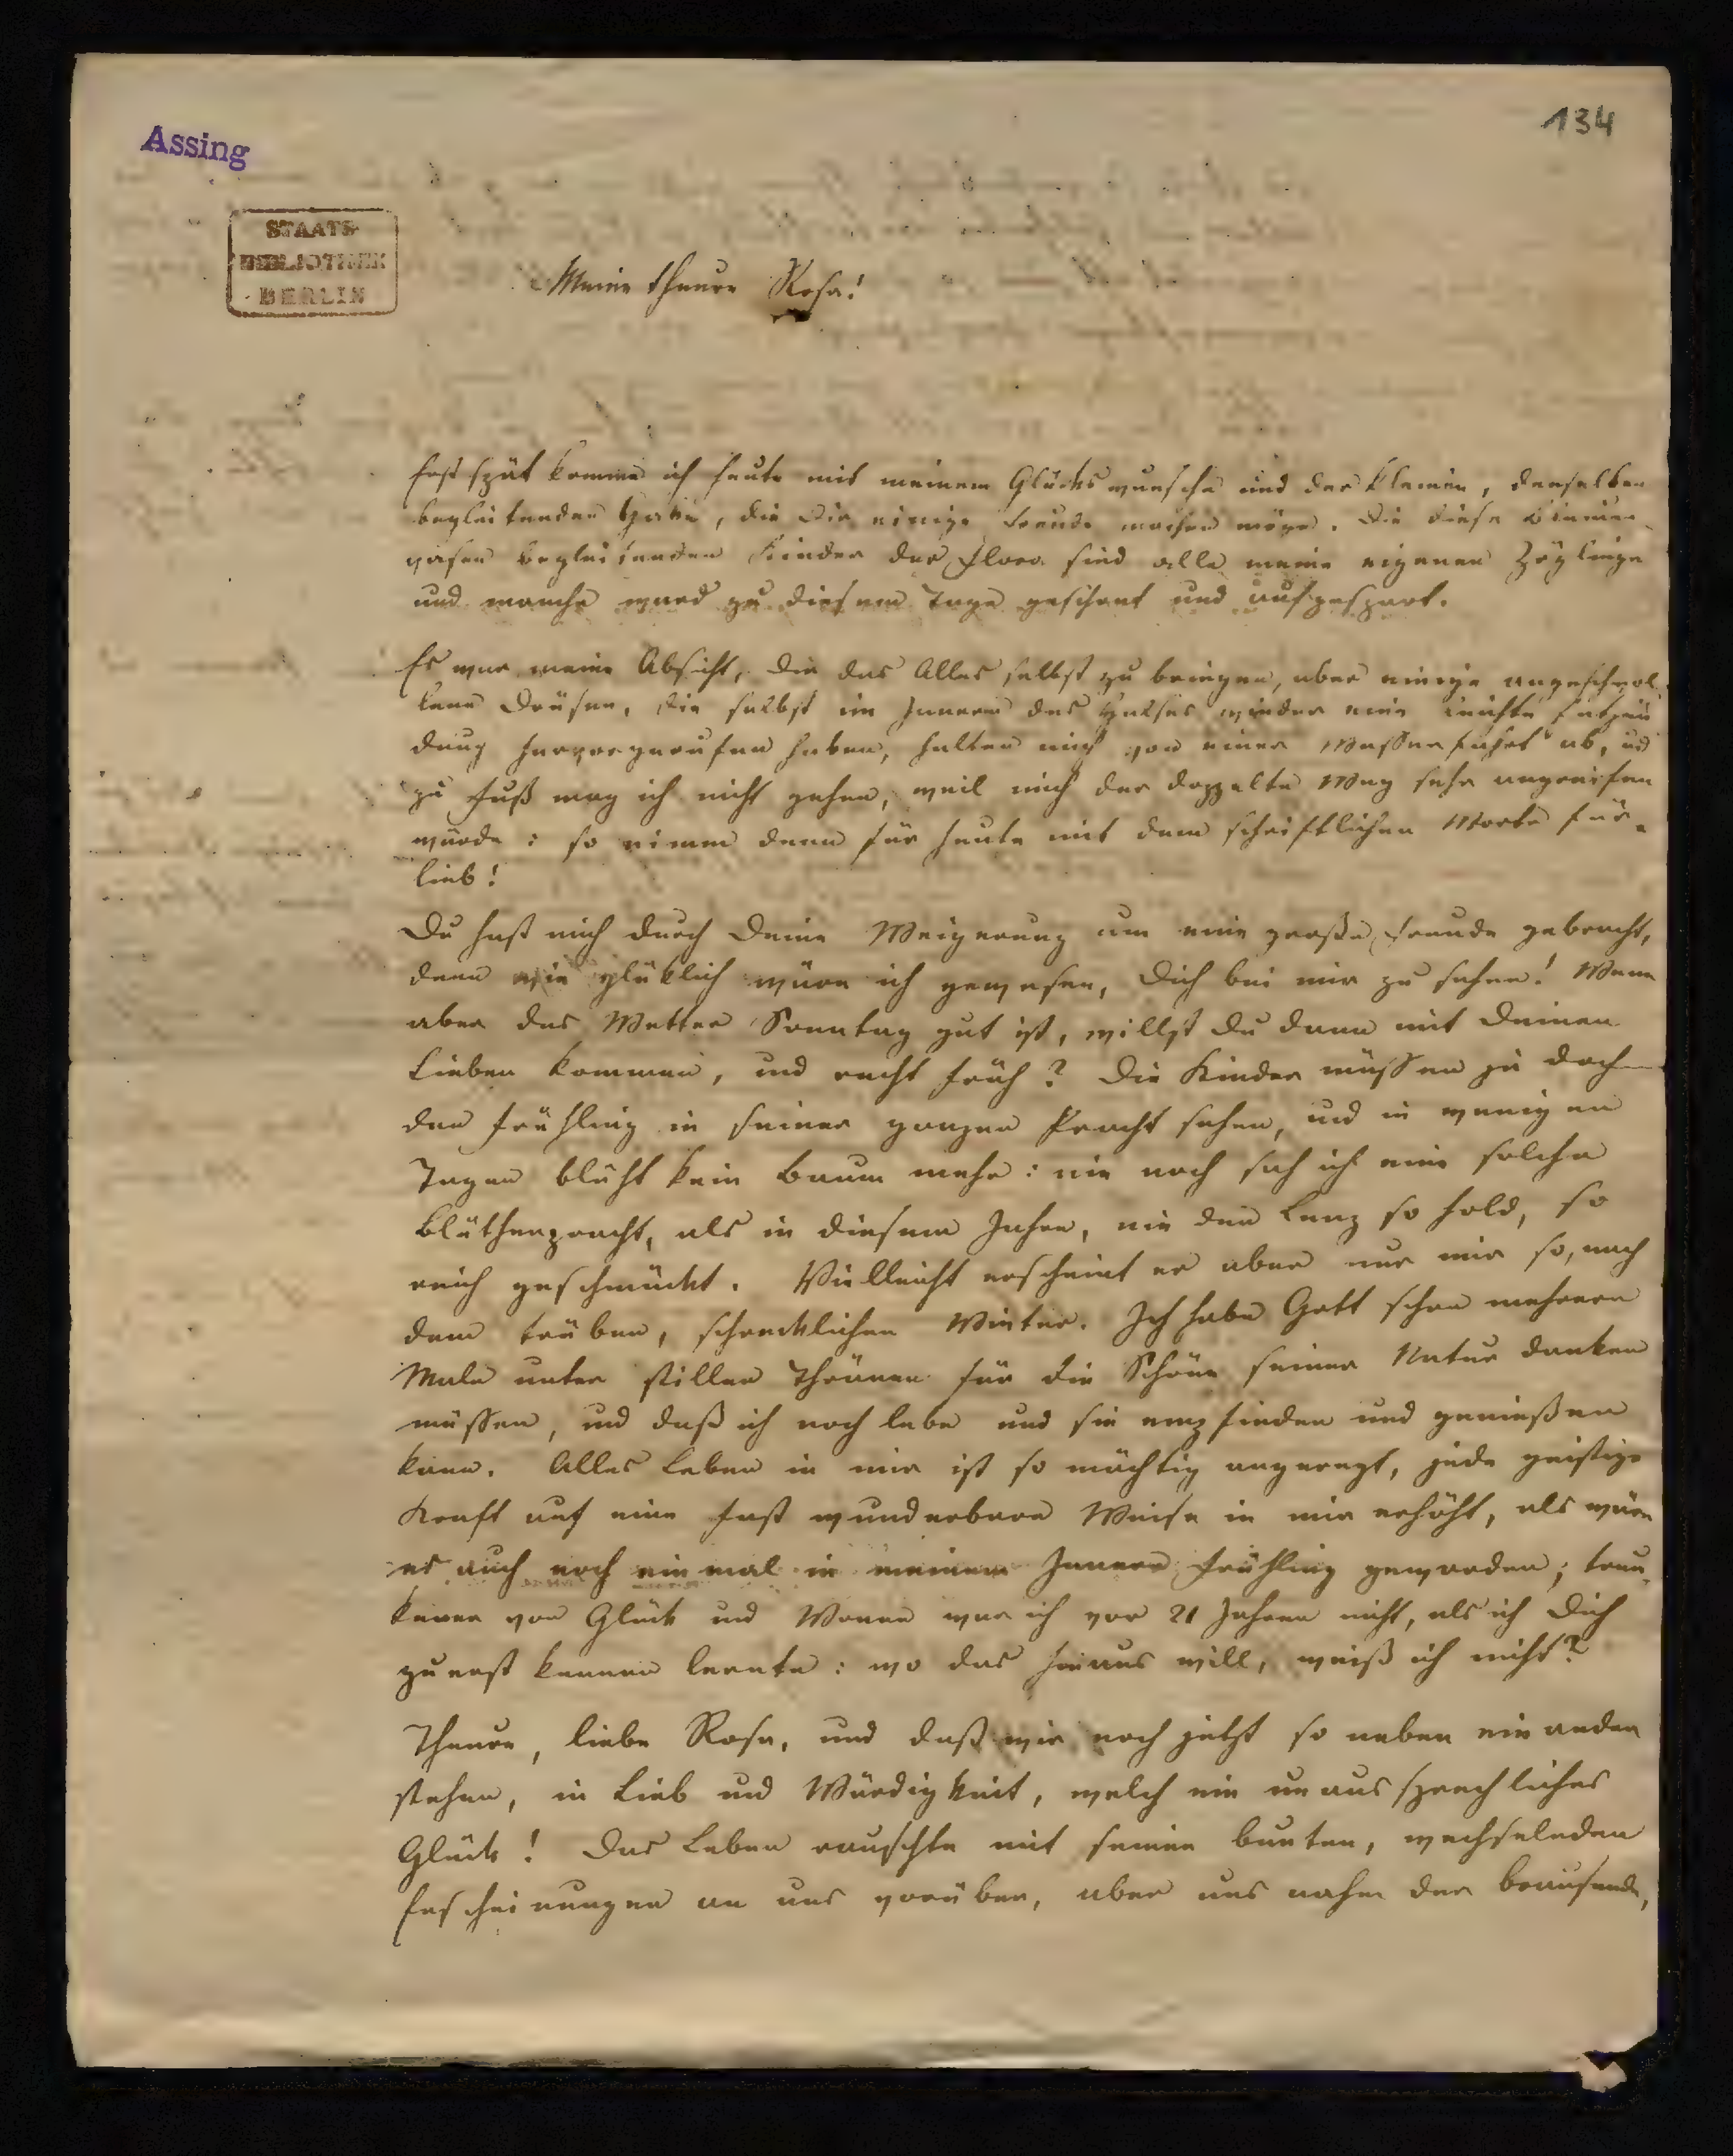 Assing
134
STAATS-
BIBLIOTHEK
BERLIN
Meine theure Rosa!
Erst spät komme ich heute mit meinem Glückswunsche und der kleinen, denselben
begleitenden Gabe, die Dir einige Freude machen möge. Die diese Blumen-
vasen begleitenden Kinder der Flora sind alle meine eigenen Zöglinge
und manche ward zu diesem Tage geschont und aufgespart.
Es war meine Absicht, Dir das Alles selbst zu bringen, aber einige angeschwol-
lene Drüsen, die selbst im Innern des Halses wieder eine leichte Entzün
dung hervorgerufen haben, halten mich von einer Wasserfahrt ab, und
zu Fuß mag ich nicht gehen, weil mich der doppelte Weg sehr angreifen
würde: so nimm denn für heute mit dem schriftlichen Worte für-
lieb!
Du hast mich durch Deine Weigerung um eine große Freude gebracht,
denn wie glüklich wäre ich gewesen, Dich bei mir zu sehen! Wenn
aber das Wetter Sonntag gut ist, willst Du dann mit Deinen
Lieben kommen, und recht früh? Die Kinder müssen ja doch
den Frühling in seiner ganzen Pracht sehen, und in wenigen
Tagen blüht kein Baum mehr: nie noch sah ich eine solche
Blüthenpracht, als in diesem Jahre, nie den Lenz so hold, so
reich geschmückt. Vielleicht erscheint er aber nur mir so, nach
dem trüben, schrecklichen Winter. Ich habe Gott schon mehrere
Male unter stillen Thränen für die Schöne seiner Natur danken
müssen, und daß ich noch lebe und sie empfinden und genießen
kann. Alles Leben in mir ist so mächtig angeregt, jede geistige
Kraft auf eine fast wunderbare Weise in mir erhöht, als wäre
es auch noch ein mal in meinem Innern Frühling geworden; trun-
kener von Glück und Wonne war ich vor 21 Jahren nicht, als ich Dich
zuerst kennen lernte: wo das hinaus will, weiß ich nicht?
Theure, liebe Rosa, und daß wir noch jetzt so neben einander
stehen, in Lieb und Würdigkeit, welch ein unaussprechliches
Glück! Das Leben rauschte mit seinen bunten, wechselnden
Erscheinungen an uns vorüber, aber uns nahm der brausende,